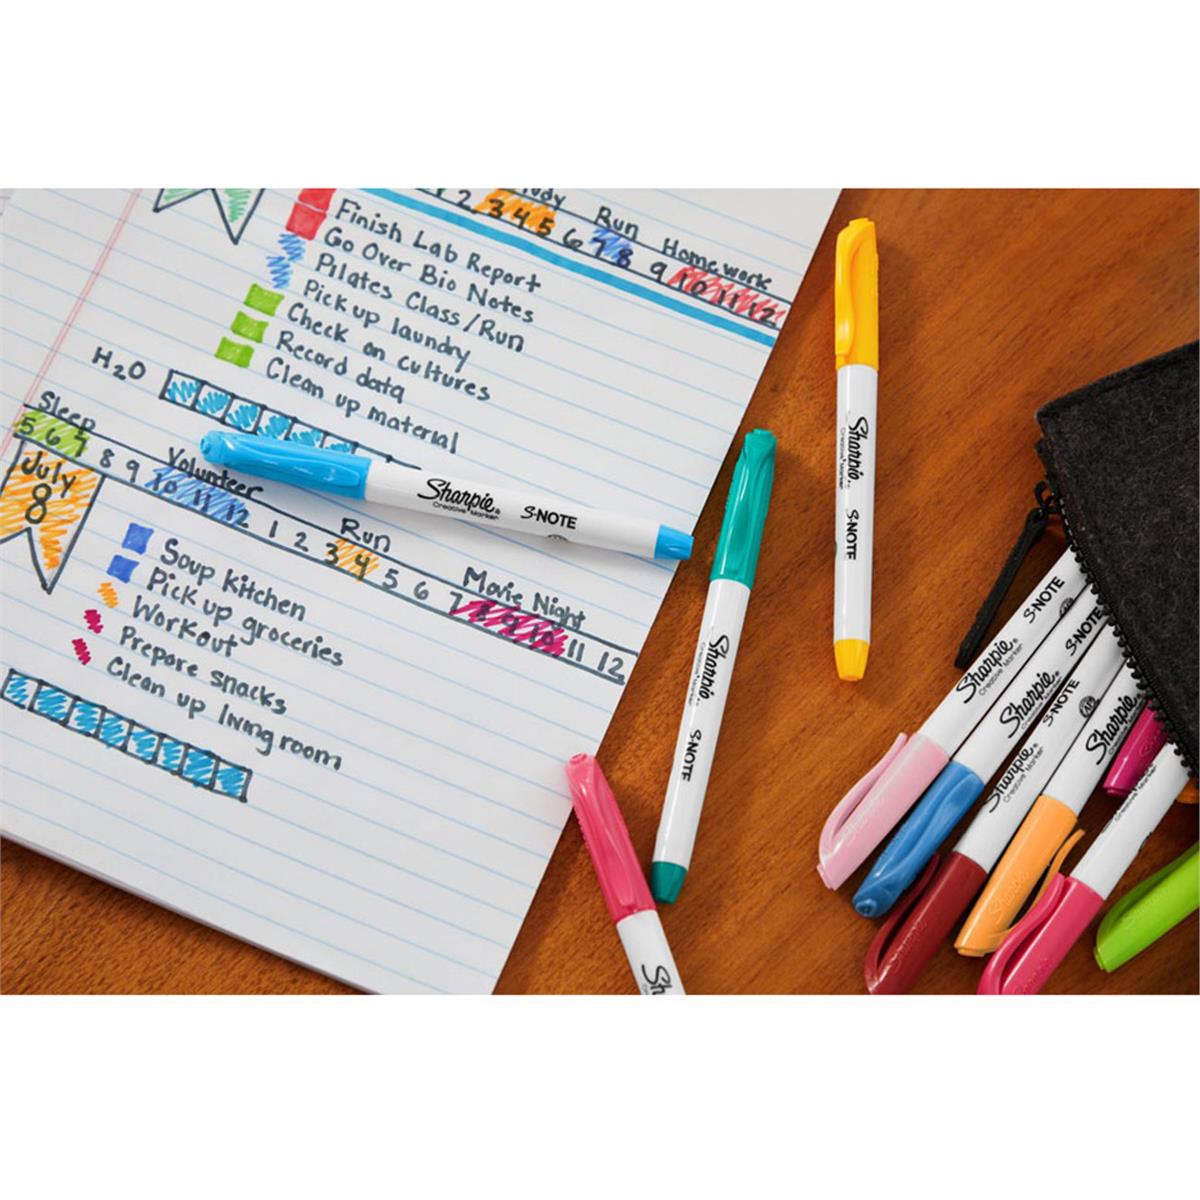 Study Run Homework
2 3 4 5 6 7 8 9 10 11 12
Finish Lab Report
Go Over Bio Notes
Pilates Class/Run
Pick up laundry
Check on cultures
Record data
Clean up material
H2O
Sleep Volunteer Run Movie Night
5 6 7 8 9 10 11 12 1 2 3 4 5 6 7 8 9 10 11 12
July
8
Soup Kitchen
Pick up groceries
Workout
Prepare snacks
Clean up living room
Sharpie® S·NOTE
Creative Marker
Sharpie S·NOTE
Creative Marker
Sharpie S·NOTE
Creative Marker
Sharpie® S·NOTE
Creative Marker
Sharpie S·NOTE
Creative Marker
Sharpie S·NOTE
Creative Marker
Sharpie
Creative Marker